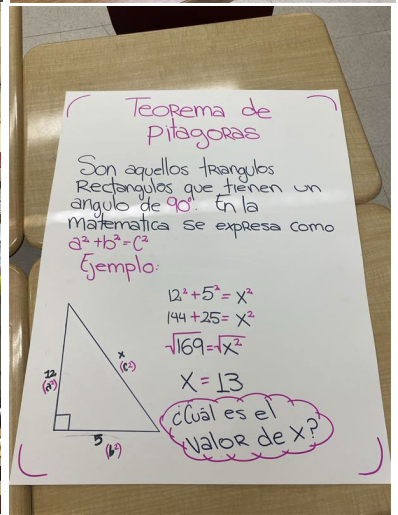 Teorema de
Pitagoras
Son aquellos triangulos
Rectangulos que tienen un
angulo de 90°. En la
matematica se expresa como
a²+b²=c²
Ejemplo:
12²+5²=x²
144+25=x²
√169=√x²
x=13
12
(a²)
x
(c²)
5
(b²)
¿Cuál es el
valor de x?